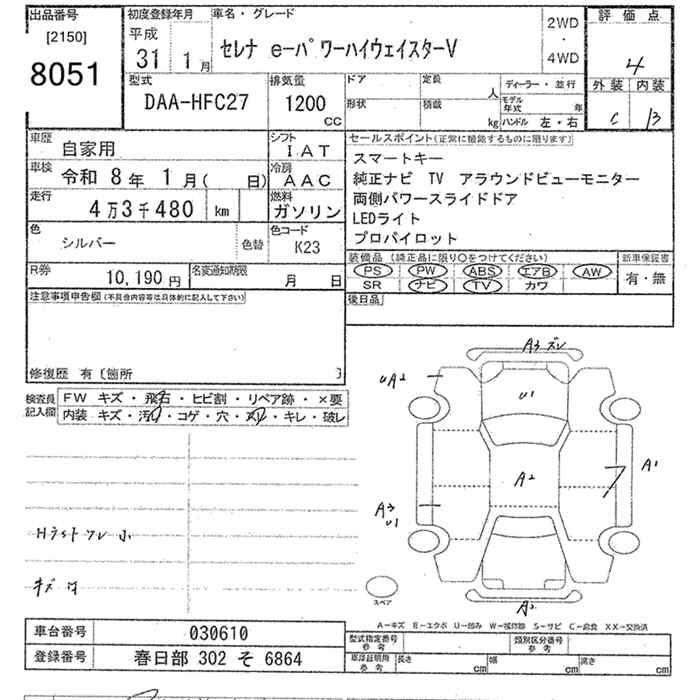 出品番号 初度登録年月 車名・グレード 評価点
[2150] 8051
平成 31 1月 セレナ e-パワーハイウェイスターV 2WD・4WD 4
型式 排気量 ドア 定員 人 ディーラー・並行 外装 内装
DAA-HFC27 1200 cc 形状 積載 kg モデル年式 年 ハンドル 左・右 C B
車歴 自家用 シフト IAT セールスポイント(正常に機能するものに限ります)
車検 令和 8年 1月( 日) 冷房 AAC
走行 4万3千480 km 燃料 ガソリン
色 シルバー 色替 色コード K23
スマートキー
純正ナビ TV アラウンドビューモニター
両側パワースライドドア
LEDライト
プロパイロット
R券 10,190円 名変通知期限 月 日
装備品 (純正品に限り○をつけてください) 新車保証書
PS PW ABS エアB AW 有・無
SR ナビ TV カワ
注意事項申告欄 (不具合内容等は具体的に記入して下さい) 後日品
修復歴 有 〔箇所 〕
検査員記入欄 FW キズ・飛石・ヒビ割・リペア跡・×要
内装 キズ・汚れ・コゲ・穴・スレ・キレ・破レ
A3 ズレ
UA2
U1
A2
A1
A3
U1
A2
スペア
Hライト ワレ 小
キズ
A-キズ E-エクボ U-凹み W-補修跡 S-サビ C-腐食 XX-交換済
車台番号 030610 型式指定番号 参考 類別区分番号 参考
登録番号 春日部 302 そ 6864 車庫証明用 参考 長さ cm 幅 cm 高さ cm